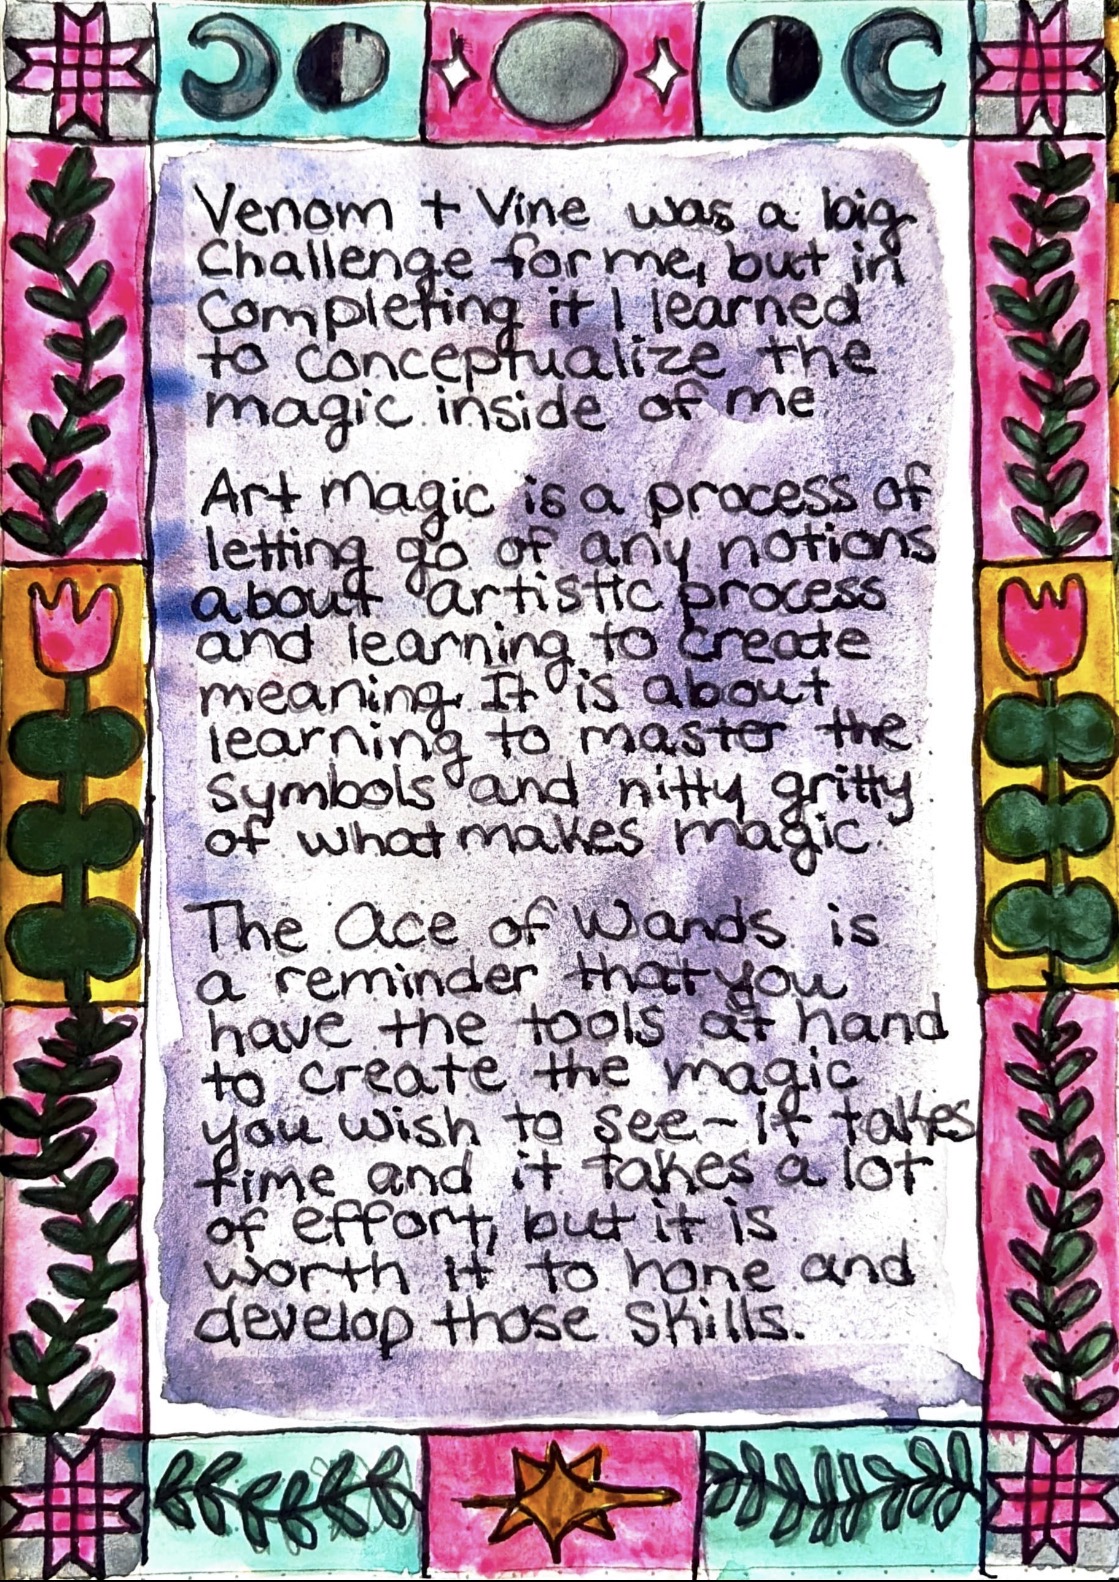 Venom + Vine was a big
Challenge for me, but in
Completing it I learned
to conceptualize the
magic inside of me
Art Magic is a process of
letting go of any notions
about artistic process
and learning to create
meaning. It is about
learning to master the
symbols and nitty gritty
of what makes magic.
The Ace of Wands is
a reminder that you
have the tools at hand
to create the magic
you wish to see - it takes
time and it takes a lot
of effort, but it is
worth it to hone and
develop those skills.